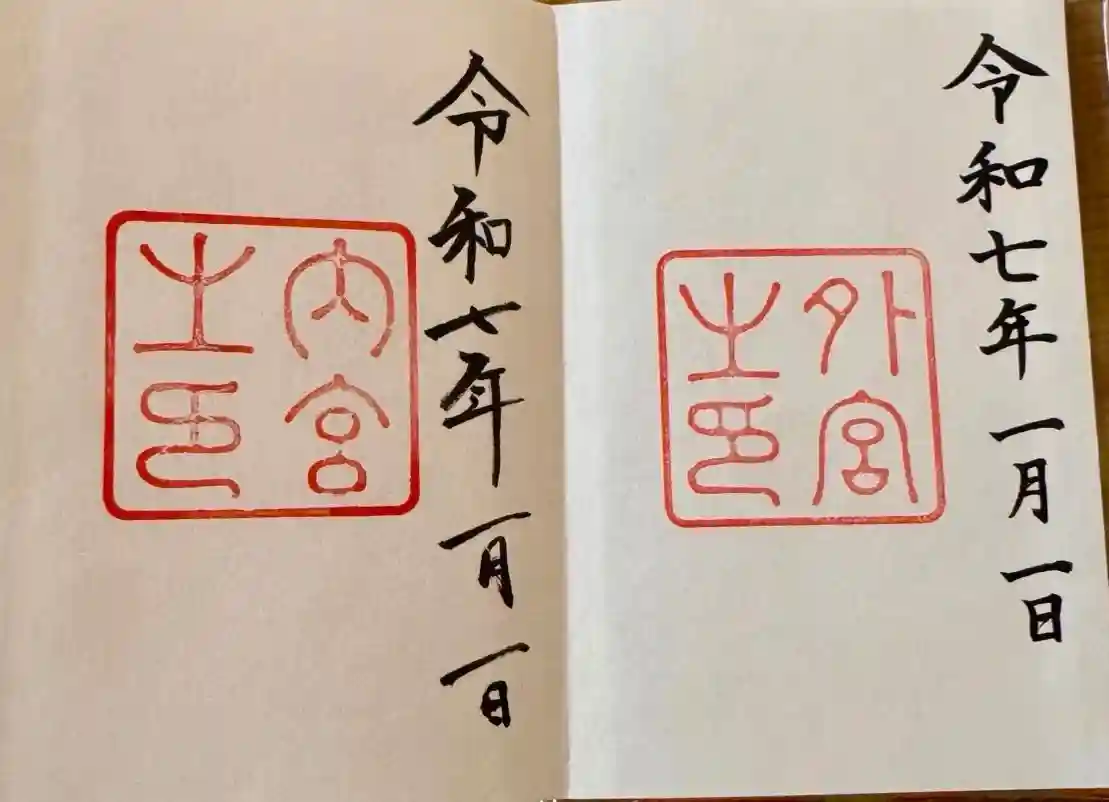 令和七年一月一日
外宮
之印
令和七年一月一日
内宮
之印